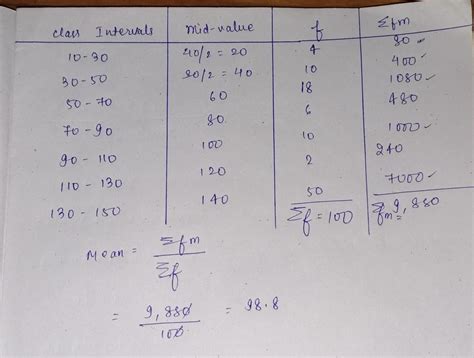 Class Intervals mid-value f Σfm
10-30 40/2 = 20 4 80
30-50 80/2 = 40 10 400
50-70 60 18 1080
70-90 80 6 480
90-110 100 10 1000
110-130 120 2 240
130-150 140 50 7000
Σf = 100 Σfm = 9,880
Mean = Σfm / Σf
= 9,880 / 100 = 98.8